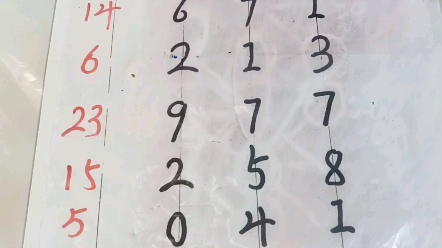 14 6 7 1
6 2 1 3
23 9 7 7
15 2 5 8
5 0 4 1